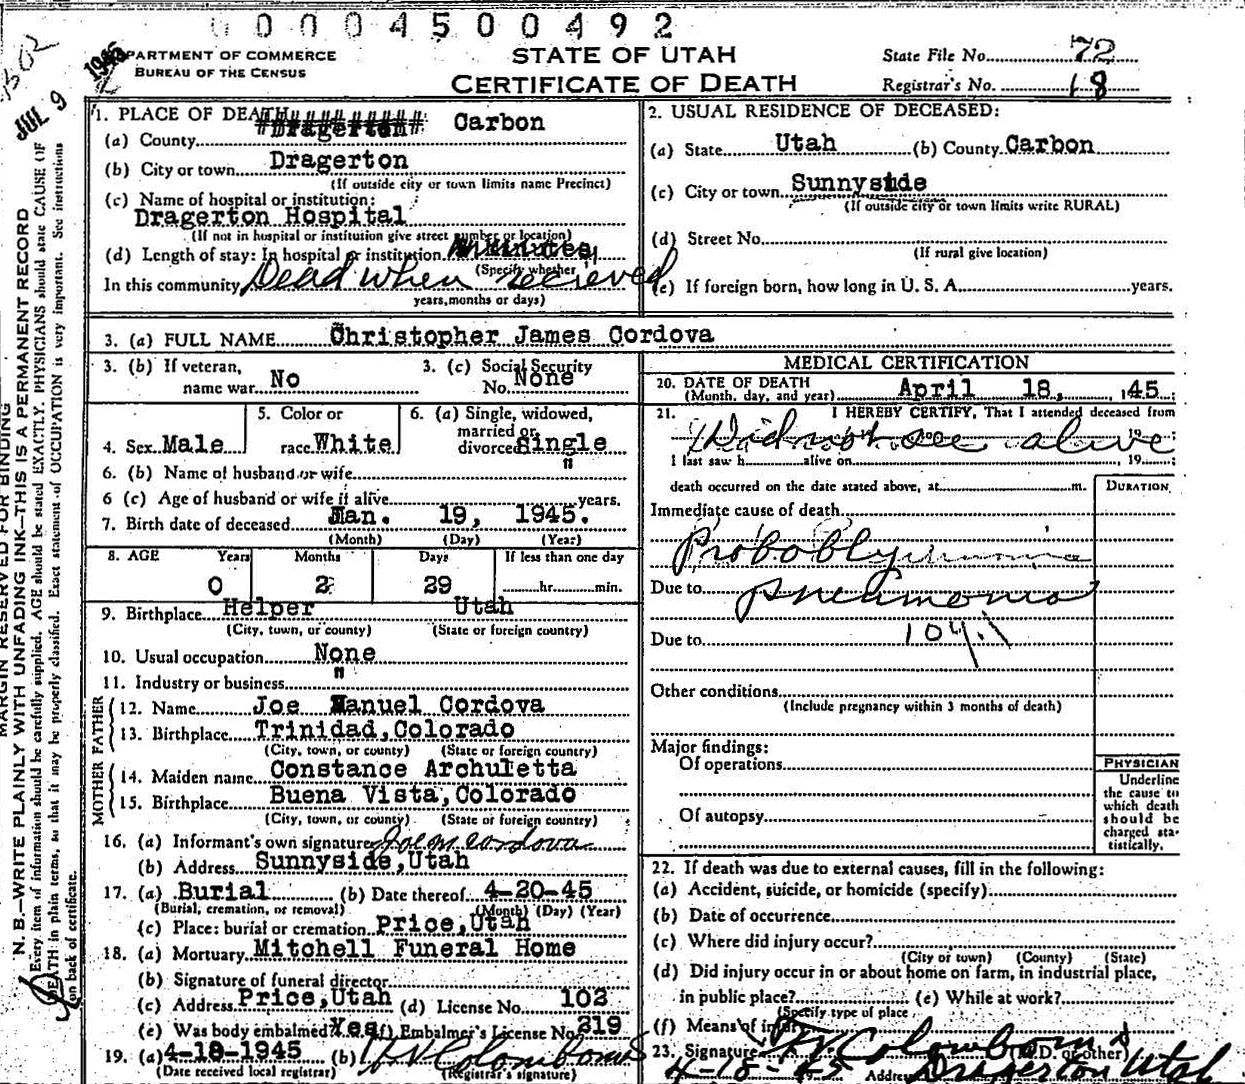 0 0 0 4 5 0 0 4 9 2
DEPARTMENT OF COMMERCE
BUREAU OF THE CENSUS
STATE OF UTAH
CERTIFICATE OF DEATH
State File No. 72
Registrar's No. 18
JUL 9 1945
MARGIN RESERVED FOR BINDING
N. B.—WRITE PLAINLY WITH UNFADING INK—THIS IS A PERMANENT RECORD
Every item of information should be carefully supplied. AGE should be stated EXACTLY. PHYSICIANS should state CAUSE OF
DEATH in plain terms, so that it may be properly classified. Exact statement of OCCUPATION is very important. See instructions
on back of certificate.
1. PLACE OF DEATH
(a) County Carbon
(b) City or town Dragerton
(If outside city or town limits name Precinct)
(c) Name of hospital or institution:
Dragerton Hospital
(If not in hospital or institution give street number or location)
(d) Length of stay: In hospital or institution
(Specify whether
In this community Dead when recieved
years, months or days)
2. USUAL RESIDENCE OF DECEASED:
(a) State Utah (b) County Carbon
(c) City or town Sunnyside
(If outside city or town limits write RURAL)
(d) Street No.
(If rural give location)
(e) If foreign born, how long in U. S. A. years.
3. (a) FULL NAME Christopher James Cordova
3. (b) If veteran, name war No
3. (c) Social Security No. None
4. Sex Male
5. Color or race White
6. (a) Single, widowed, married or divorced Single
6. (b) Name of husband or wife "
6 (c) Age of husband or wife if alive years.
7. Birth date of deceased Jan. 19, 1945.
(Month) (Day) (Year)
8. AGE Years Months Days If less than one day
0 2 29 hr. min.
9. Birthplace Helper Utah
(City, town, or county) (State or foreign country)
10. Usual occupation None
11. Industry or business "
FATHER
12. Name Joe Manuel Cordova
13. Birthplace Trinidad, Colorado
(City, town, or county) (State or foreign country)
MOTHER
14. Maiden name Constance Archuletta
15. Birthplace Buena Vista, Colorado
(City, town, or county) (State or foreign country)
16. (a) Informant's own signature Joe M Cordova
(b) Address Sunnyside, Utah
17. (a) Burial (b) Date thereof 4-20-45
(Burial, cremation, or removal) (Month) (Day) (Year)
(c) Place: burial or cremation Price, Utah
18. (a) Mortuary Mitchell Funeral Home
(b) Signature of funeral director
(c) Address Price, Utah (d) License No. 102
(e) Was body embalmed? Yes (f) Embalmer's License No. 219
19. (a) 4-18-1945 (b)
(Date received local registrar) (Registrar's signature)
MEDICAL CERTIFICATION
20. DATE OF DEATH April 18, 1945;
(Month, day, and year)
21. I HEREBY CERTIFY, That I attended deceased from
Did not see alive
I last saw h alive on , 19 ;
death occurred on the date stated above, at m.
DURATION
Immediate cause of death
Probably
Due to pneumonia
Due to
Other conditions
(Include pregnancy within 3 months of death)
Major findings:
Of operations
Of autopsy
PHYSICIAN
Underline
the cause to
which death
should be
charged sta-
tistically.
22. If death was due to external causes, fill in the following:
(a) Accident, suicide, or homicide (specify)
(b) Date of occurrence
(c) Where did injury occur?
(City or town) (County) (State)
(d) Did injury occur in or about home on farm, in industrial place,
in public place? (e) While at work?
(Specify type of place
(f) Means of injury
23. Signature (M.D. or other)
4-18-45 Address Dragerton Utah